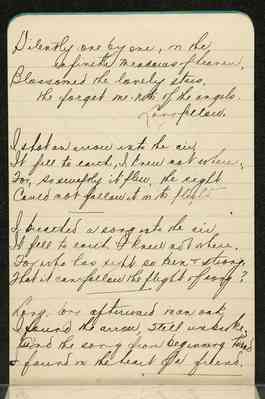 Silently one by one, in the
infinite meadows of heaven,
Blossomed the lovely stars,
the forget-me-nots of the angels.
Longfellow.
I shot an arrow into the air,
It fell to earth, I knew not where;
For, so swiftly it flew, the sight
Could not follow it in its flight.
I breathed a song into the air,
It fell to earth I knew not where.
For who has sight so keen & strong,
That it can follow the flight of song?
Long, long afterward in an oak
I found the arrow, still unbroke;
And the song from beginning to end
I found in the heart of a friend.